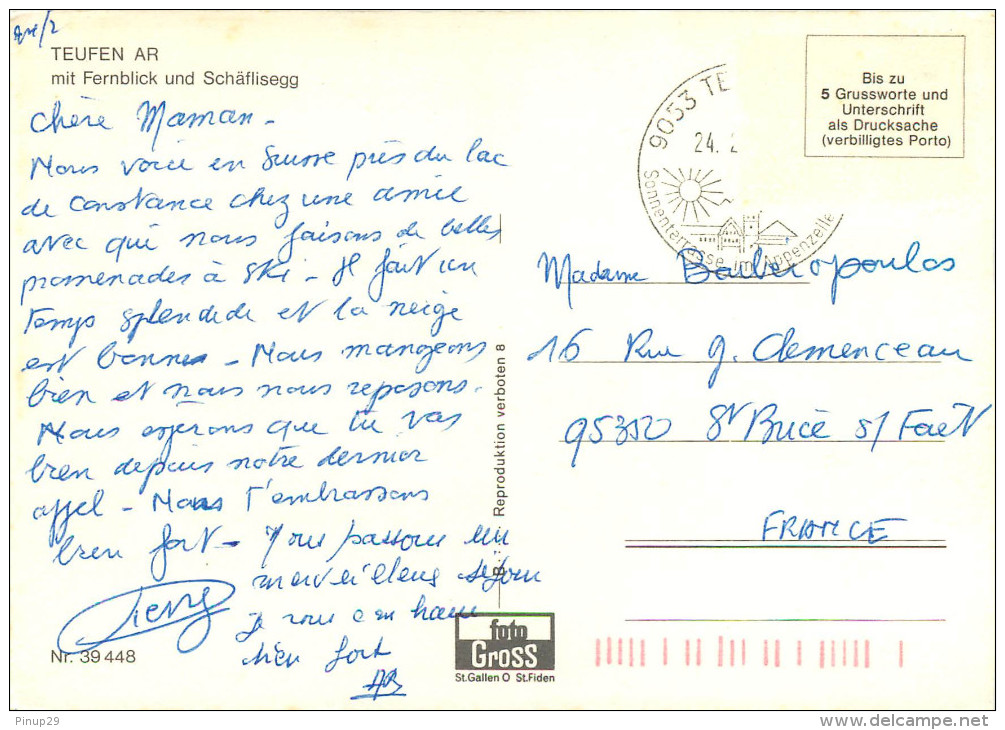 TEUFEN AR
mit Fernblick und Schäflisegg
Chère Maman -
Nous voici en Suisse près du lac
de constance chez une amie
avec qui nous faisons de belles
promenades à ski - Il fait un
temps splendide et la neige
est bonne - Nous mangeons
bien et nous nous reposons.
Nous espérons que tu vas
bien depuis notre dernier
appel - Nous t'embrassons
bien fort - Nous passons un
merveilleux séjour
je vous embrasse
bien fort
AB
Pierre
Nr. 39 448
Reproduktion verboten 8
foto
Gross
St.Gallen O St.Fiden
9053 TE
24. 2
Sonnenterrasse im Appenzelle
Bis zu
5 Grussworte und
Unterschrift
als Drucksache
(verbilligtes Porto)
Madame
16 Rue G. Clemenceau
95350 St Brice s/ Forêt
FRANCE
Pinup29
delcampe.net